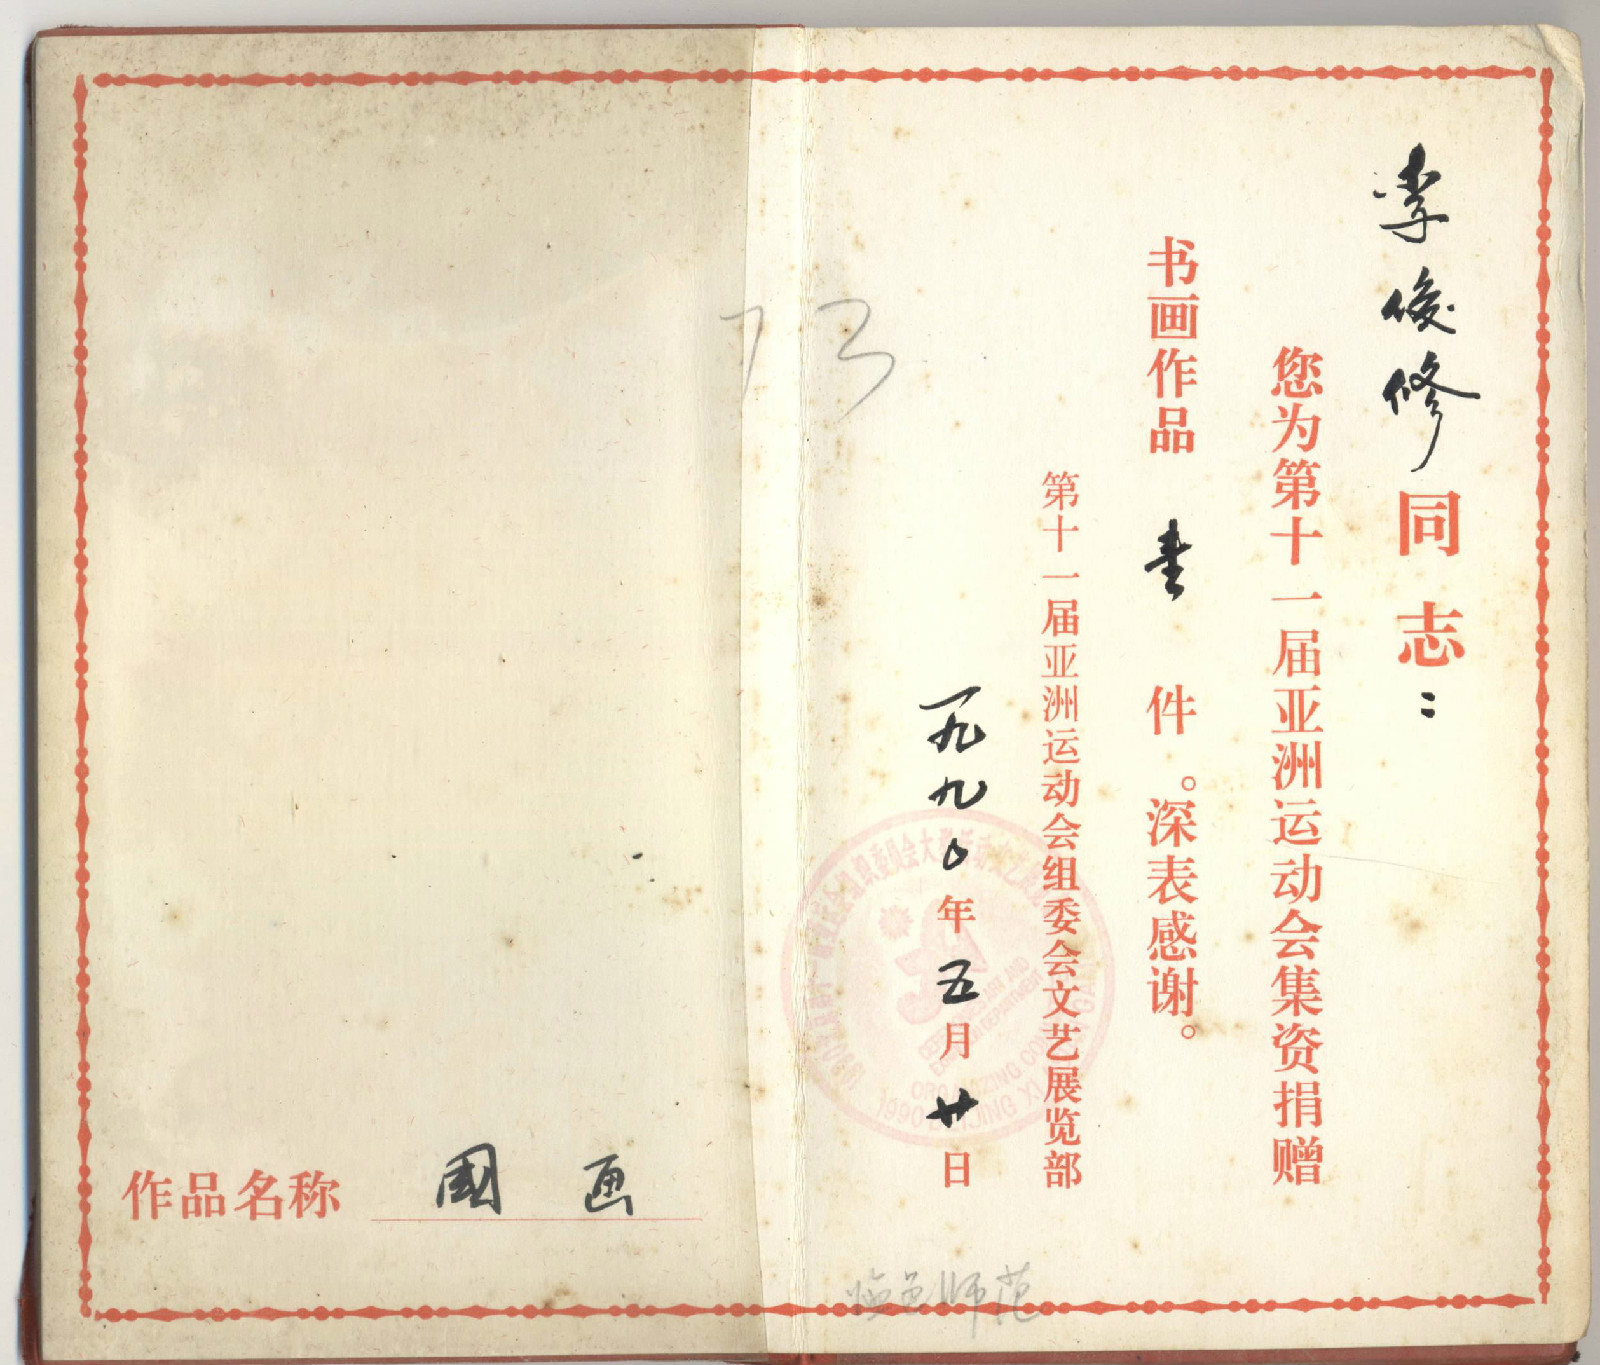 李俊修同志：
您为第十一届亚洲运动会集资捐赠
书画作品 壹 件。深表感谢。
第十一届亚洲运动会组委会文艺展览部
一九九〇年五月廿日
作品名称 國画
73
师范
ORGANIZING COMMITTEE
1990 BEIJING XI